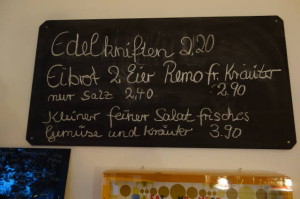 Edelkniften 2,20
Eibrot 2 Eier Remo fr. Kräuter
nur Salz 2,40 2,90
Kleiner feiner Salat frisches
Gemüse und Kräuter 3.90